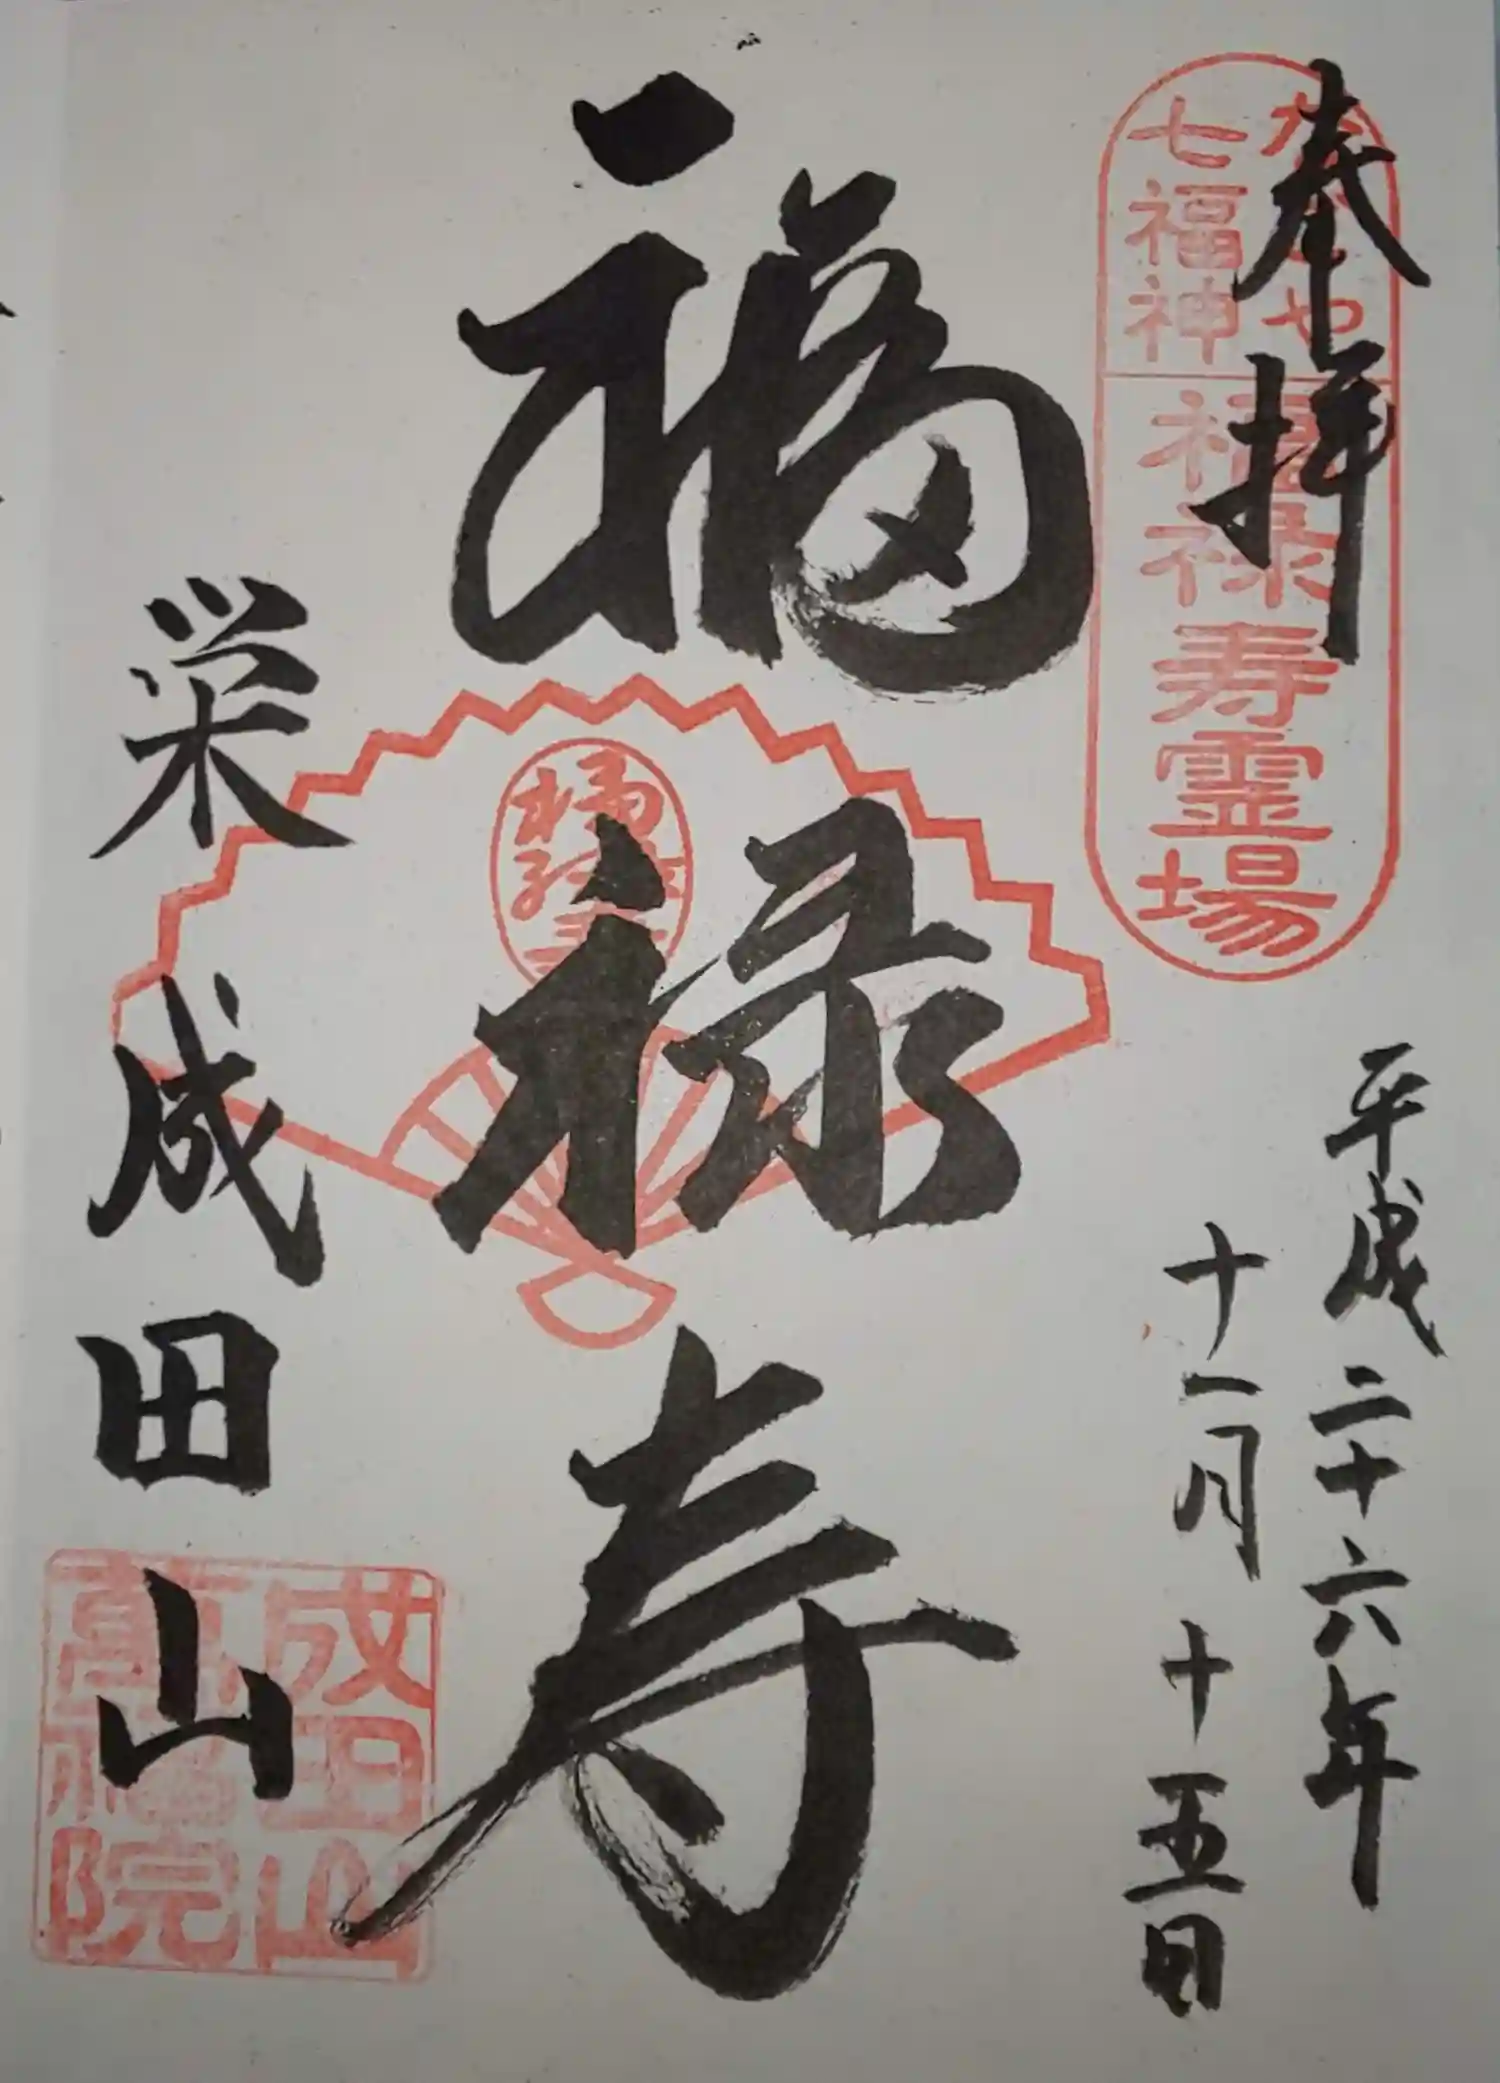 奉拝
なごや
七福神
福禄寿霊場
平成二十六年
十一月十五日
福禄寿
栄成田山
成田山
萬福院